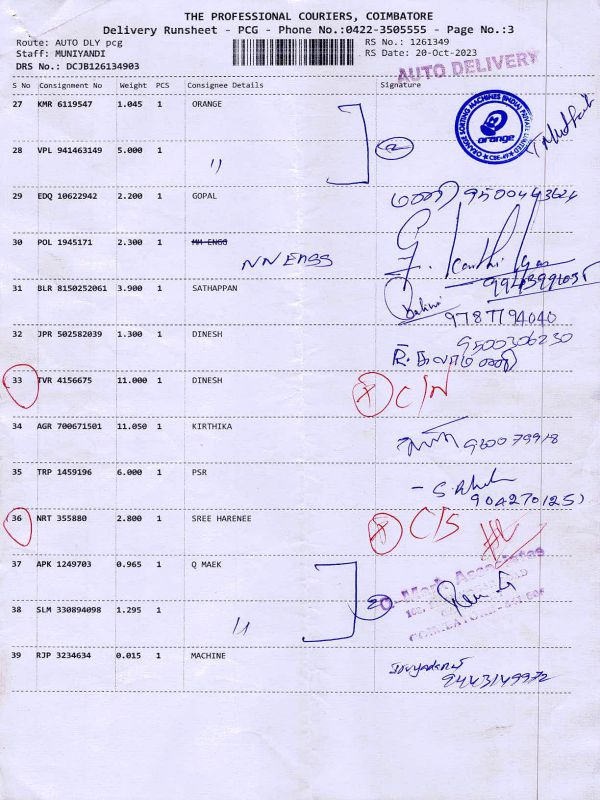 THE PROFESSIONAL COURIERS, COIMBATORE
Delivery Runsheet - PCG - Phone No.:0422-3505555 - Page No.:3
Route: AUTO DLY pcg RS No.: 1261349
Staff: MUNIYANDI RS Date: 20-Oct-2023
DRS No.: DCJB126134903
AUTO DELIVERY
S No Consignment No Weight PCS Consignee Details Signature
27 KMR 6119547 1.045 1 ORANGE
ORANGE SORTING MACHINES (INDIA) PRIVATE LIMITED
orange
28 VPL 941463149 5.000 1 〃 2
29 EDQ 10622942 2.200 1 GOPAL மணி 9500443624
30 POL 1945171 2.300 1 MM ENGG NN ENGG
31 BLR 8150252061 3.900 1 SATHAPPAN
9787794040
32 JPR 502582039 1.300 1 DINESH 9500306230
33 TVR 4156675 11.000 1 DINESH C/N
34 AGR 700671501 11.050 1 KIRTHIKA
35 TRP 1459196 6.000 1 PSR
36 NRT 355880 2.800 1 SREE HARENEE C/S
37 APK 1249703 0.965 1 Q MAEK
Q-Mark Associates
38 SLM 330894098 1.295 1 〃 2
COIMBATORE
39 RJP 3234634 0.015 1 MACHINE
9443149972